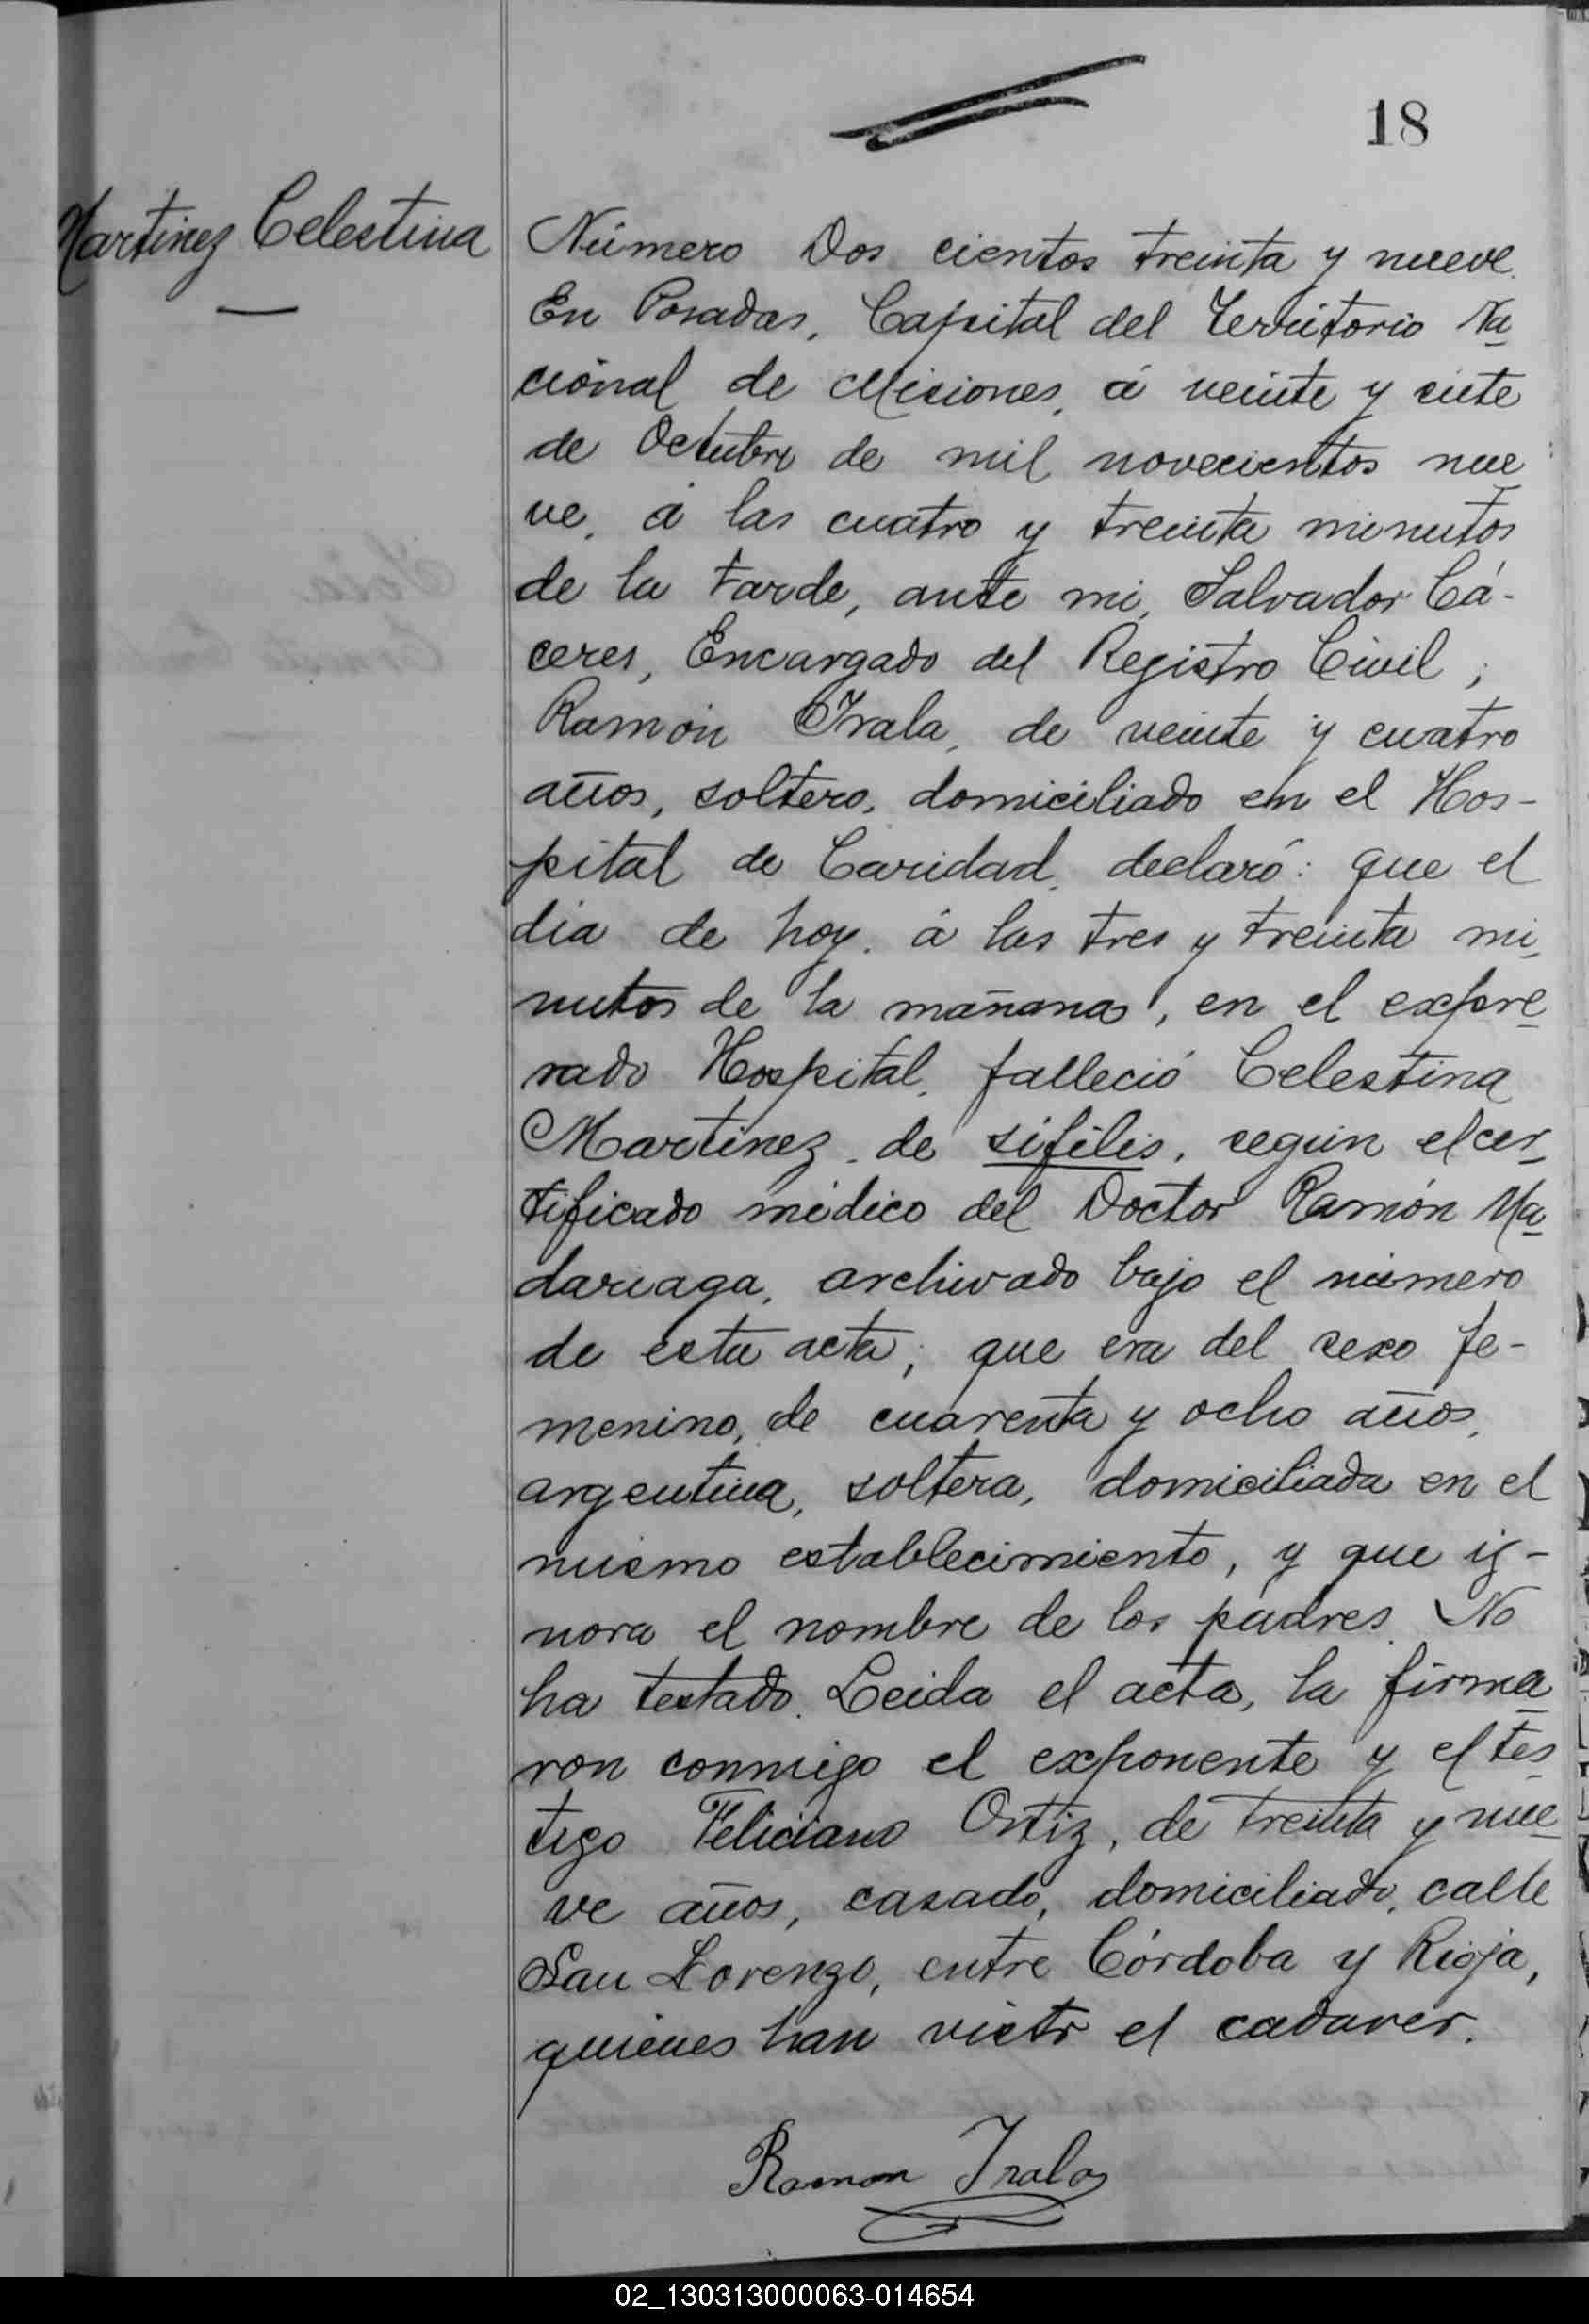 18
Martinez Celestina
Número Dos cientos treinta y nueve.
En Posadas, Capital del Territorio Na
cional de Misiones, á veinte y siete
de Octubre de mil novecientos nue
ve, á las cuatro y treinta minutos
de la tarde, ante mi, Salvador Cá-
ceres, Encargado del Registro Civil,
Ramón Irala, de veinte y cuatro
años, soltero, domiciliado en el Hos-
pital de Caridad, declaró: que el
dia de hoy, á las tres y treinta mi
nutos de la mañana, en el expre
sado Hospital, falleció Celestina
Martinez, de sifilis, según el cer
tificado médico del Doctor Ramón Ma
dariaga, archivado bajo el número
de esta acta; que era del sexo fe-
menino, de cuarenta y ocho años,
argentina, soltera, domiciliada en el
mismo establecimiento, y que ig-
nora el nombre de los padres. No
ha testado. Leida el acta, la firma
ron conmigo el exponente y el tes
tigo Feliciano Ortiz, de treinta y nue
ve años, casado, domiciliado, calle
San Lorenzo, entre Córdoba y Rioja,
quienes han visto el cadaver.
Ramon Irala
02_130313000063-014654